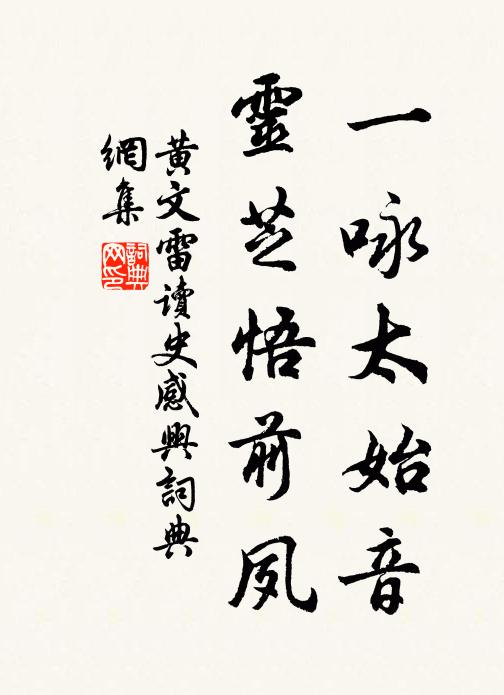 一咏太始音
靈芝悟前夙
黃文雷讀史感興詞典
網集
詞典
网印